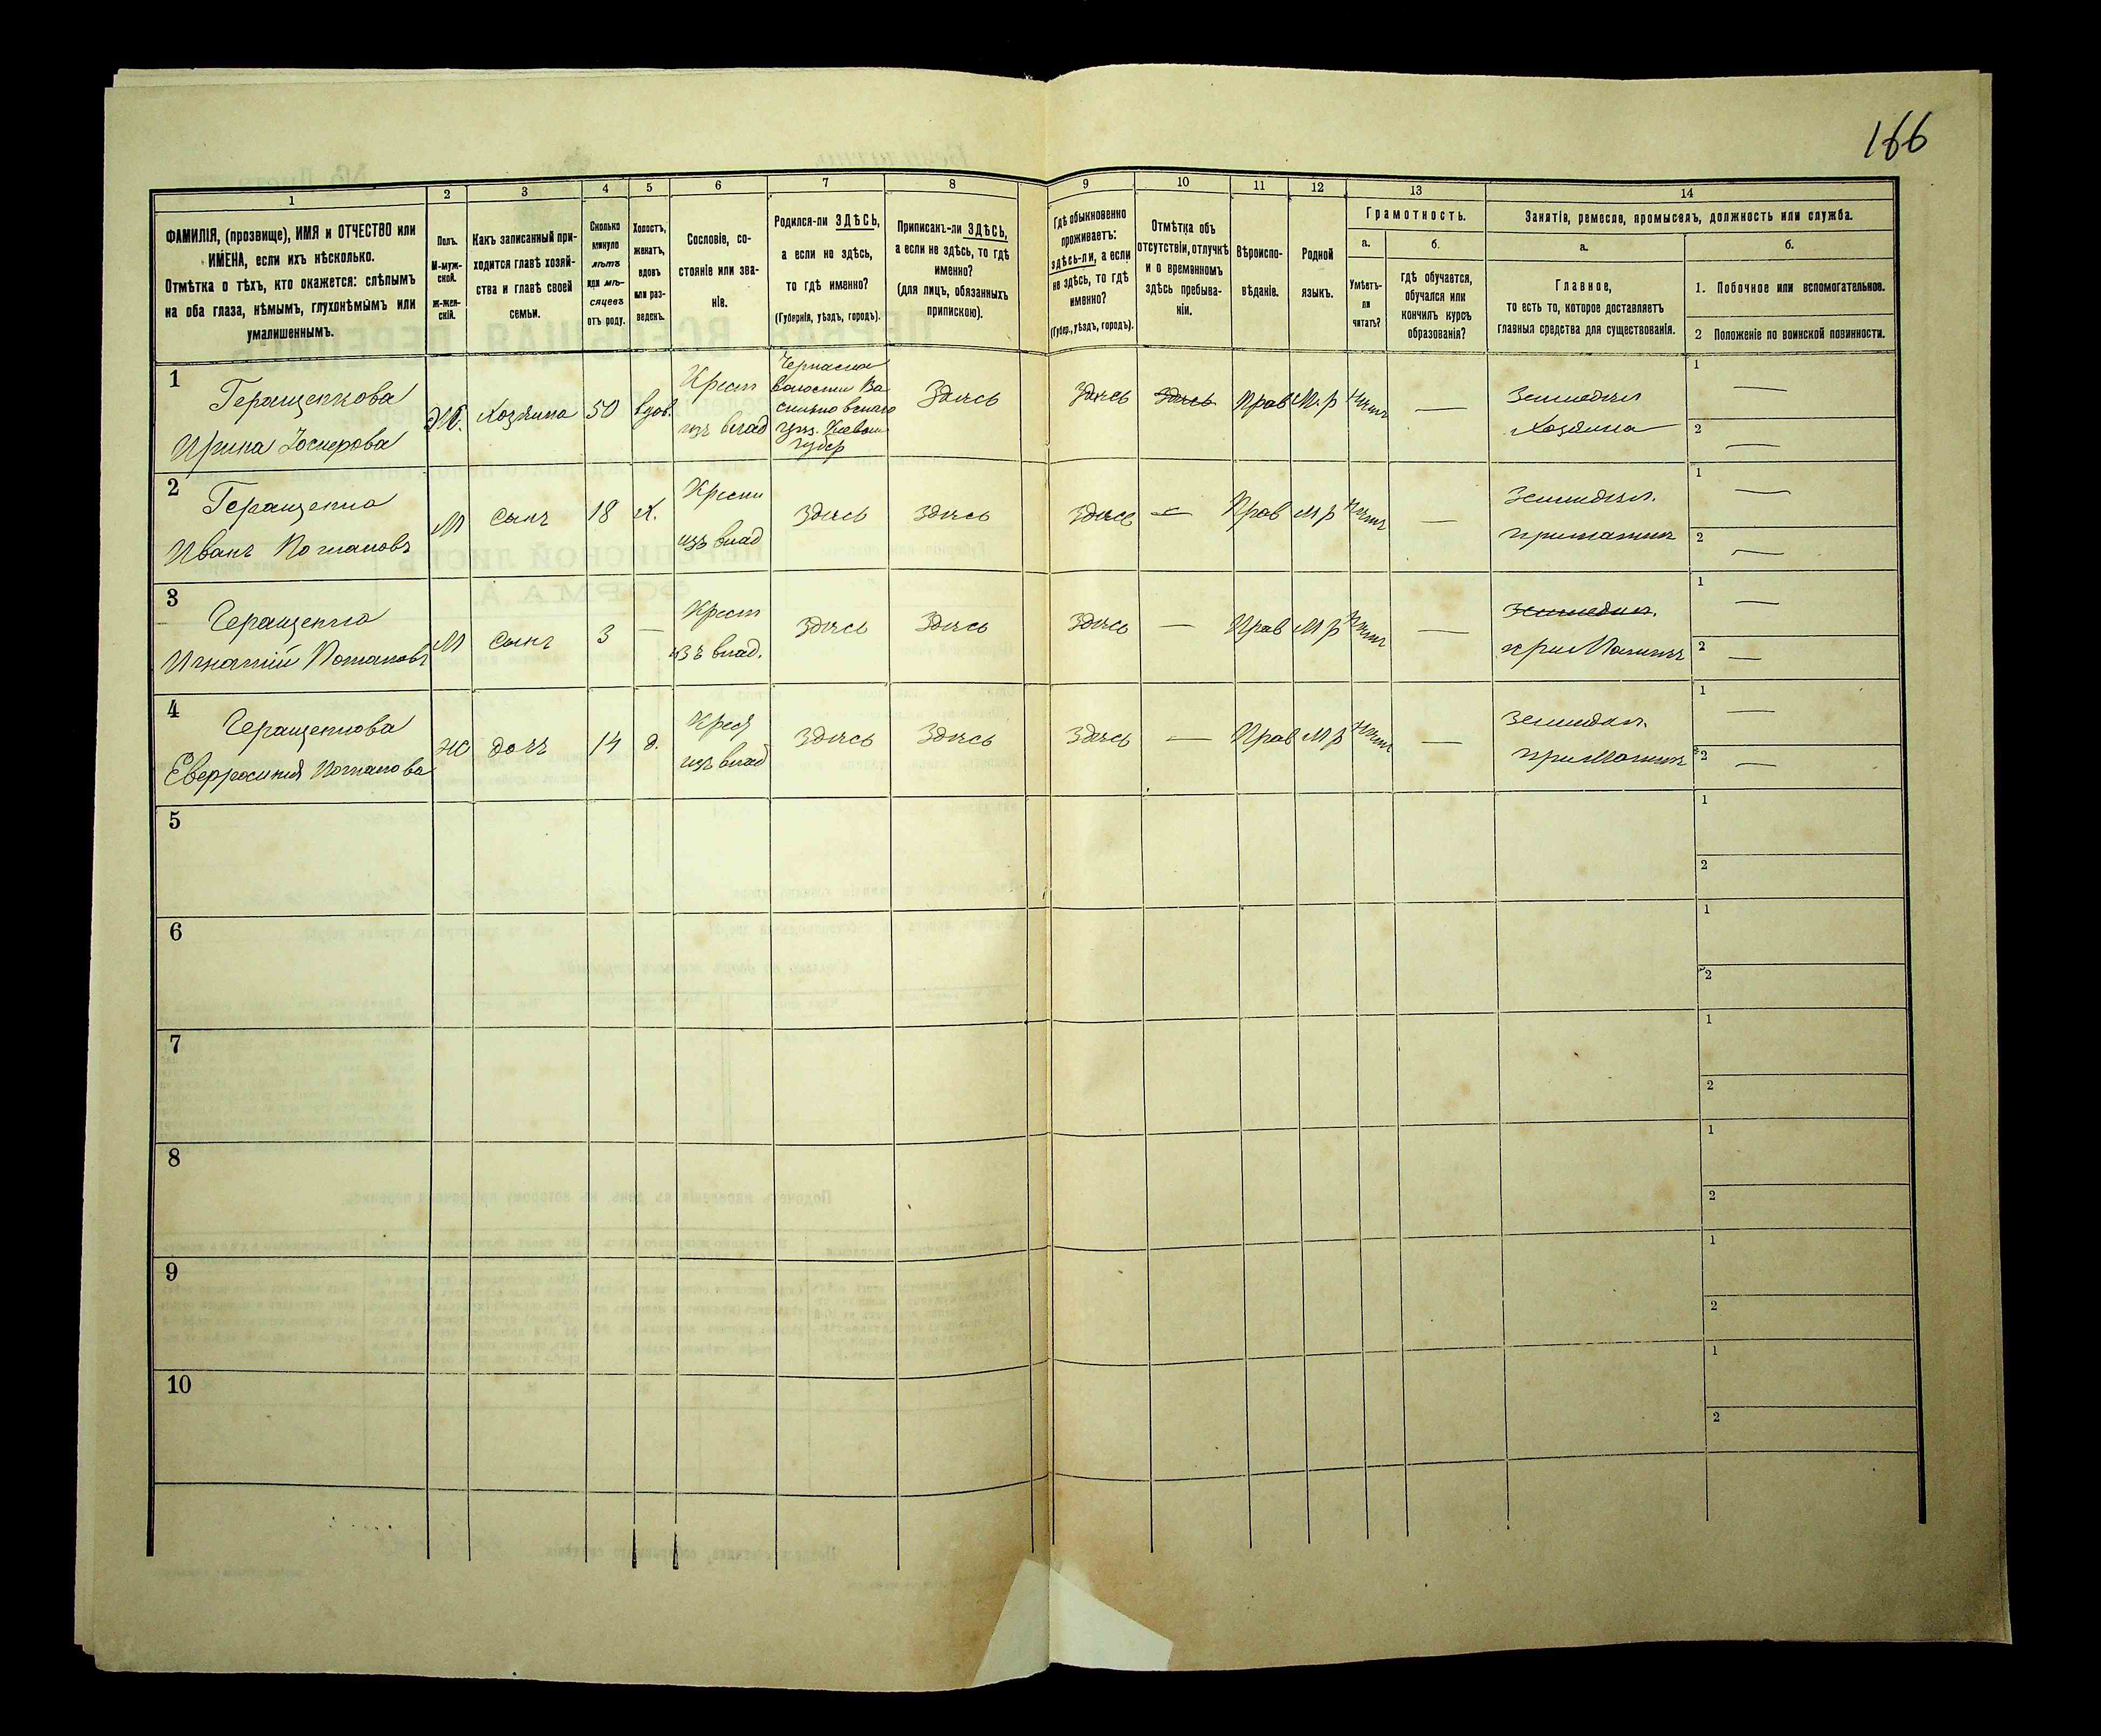 166
1
2
3
4
5
6
7
8
9
10
11
12
13
14
ФАМИЛІЯ, (прозвище), ИМЯ и ОТЧЕСТВО или
ИМЕНА, если ихъ нѣсколько.
Отмѣтка о тѣхъ, кто окажется: слѣпымъ
на оба глаза, нѣмымъ, глухонѣмымъ или
умалишеннымъ.
Полъ.
М-муж-
ской.
ж-жен-
скій.
Какъ записанный при-
ходится главѣ хозяй-
ства и главѣ своей
семьи.
Сколько
минуло
лѣтъ
или мѣ-
сяцевъ
отъ роду.
Холостъ,
женатъ,
вдовъ
или раз-
веденъ.
Сословіе, со-
стояніе или зва-
ніе.
Родился-ли ЗДѢСЬ,
а если не здѣсь,
то гдѣ именно?
(Губернія, уѣздъ, городъ).
Приписанъ-ли ЗДѢСЬ,
а если не здѣсь, то гдѣ
именно?
(для лицъ, обязанныхъ
припискою).
Гдѣ обыкновенно
проживаетъ:
здѣсь-ли, а если
не здѣсь, то гдѣ
именно?
(Губер., уѣздъ, городъ).
Отмѣтка объ
отсутствіи, отлучкѣ
и о временномъ
здѣсь пребыва-
ніи.
Вѣроиспо-
вѣданіе.
Родной
языкъ.
Грамотность.
а.
Умѣетъ-
ли
читать?
б.
гдѣ обучается,
обучался или
кончилъ курсъ
образованія?
Занятіе, ремесло, промыселъ, должность или служба.
а.
Главное,
то есть то, которое доставляетъ
главныя средства для существованія.
б.
1. Побочное или вспомогательное.
2 Положеніе по воинской повинности.
1
Геращенкова
Ирина Іосифова
Ж.
Хозяика
50
вдов.
Крест
изъ влад
волости Ва
губер
Здѣсь
Здѣсь
Здѣсь
Прав
М.р
—
Земледѣл
Хозяика
1 —
2 —
2
Геращенко
Иванъ Потаповъ
М
сынъ
18
х.
Крест
изъ влад
здѣсь
здѣсь
здѣсь
—
Прав
М р
—
Земледѣл.
1 —
2 —
3
Геращенко
Игнатій Потаповъ
М
сынъ
3
—
Крест
изъ влад.
здѣсь
здѣсь
здѣсь
—
Прав
М р
—
Земледѣл.
1 —
2 —
4
Геращенкова
Евфросинія Потапова
Ж
дочь
14
д.
Крест
изъ влад
здѣсь
здѣсь
здѣсь
—
Прав
М р
—
Земледѣл.
1 —
2 —
5
1
2
6
1
2
7
1
2
8
1
2
9
1
2
10
1
2